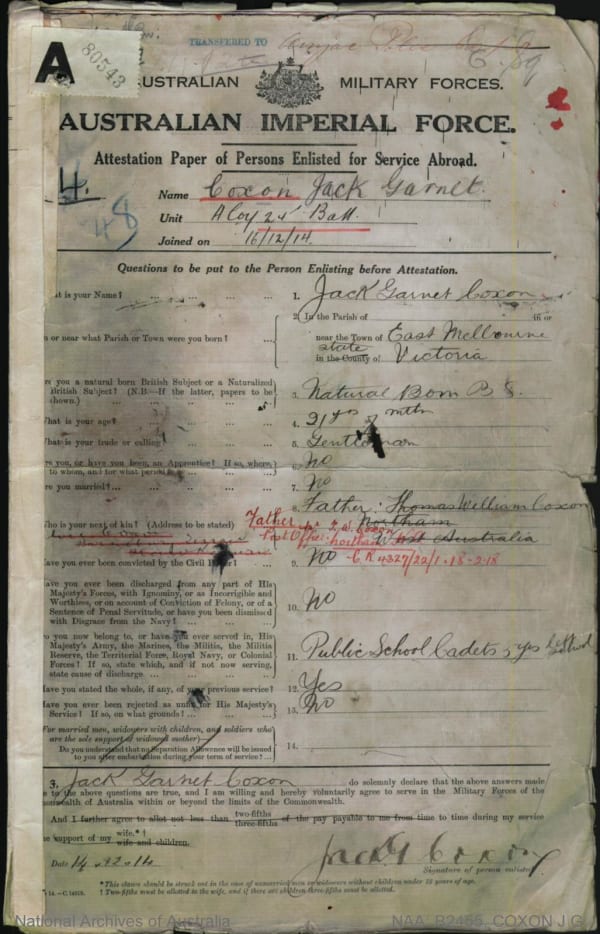 TRANSFERED TO Anzac
A 80543
AUSTRALIAN MILITARY FORCES.
AUSTRALIAN IMPERIAL FORCE.
Attestation Paper of Persons Enlisted for Service Abroad.
4.
48
Name Coxon Jack Garnet
Unit A Coy 24th Batt.
Joined on 16/12/14.
Questions to be put to the Person Enlisting before Attestation.
at is your Name? ... ... ... ... 1. Jack Garnet Coxon
2. In the Parish of in or
n or near what Parish or Town were you born? ... near the Town of East Melbourne
state
in the County of Victoria
re you a natural born British Subject or a Naturalized
British Subject? (N.B.—If the latter, papers to be
shown.) ... ... ... ... 3. Natural Born B S.
hat is your age? ... ... ... ... 4. 21 yrs mths
hat is your trade or calling? ... ... 5. Gentleman
re you, or have you been, an Apprentice? If so, where,
to whom, and for what period? ... ... 6. No
re you married? ... ... ... ... 7. No
8. Father: Thomas William Coxon
Who is your next of kin? (Address to be stated) Father T. W. Coxon Northam
Post Office Northam W. Australia
ave you ever been convicted by the Civil Power? ... 9. No C.R 4327/22/1.18-2-18
ave you ever been discharged from any part of His
Majesty's Forces, with Ignominy, or as Incorrigible and
Worthless, or on account of Conviction of Felony, or of a
Sentence of Penal Servitude, or have you been dismissed
with Disgrace from the Navy? ... ... 10. No
o you now belong to, or have you ever served in, His
Majesty's Army, the Marines, the Militia, the Militia
Reserve, the Territorial Force, Royal Navy, or Colonial
Forces? If so, state which, and if not now serving,
state cause of discharge ... ... 11. Public School Cadets 5 yrs left school
Have you stated the whole, if any, of your previous service? 12. Yes
Have you ever been rejected as unfit for His Majesty's
Service? If so, on what grounds? ... ... 13. No
(For married men, widowers with children, and soldiers who
are the sole support of widowed mother)
Do you understand that no Separation Allowance will be issued
to you after embarkation during your term of service? ... 14.
3. Jack Garnet Coxon do solemnly declare that the above answers made
e to the above questions are true, and I am willing and hereby voluntarily agree to serve in the Military Forces of the
nwealth of Australia within or beyond the limits of the Commonwealth.
And I further agree to allot not less than two-fifths three-fifths of the pay payable to me from time to time during my service
he support of my wife.*† wife and children.
Date 14.12.14 Jack G Coxon
Signature of person enlisted.
* This clause should be struck out in the case of unmarried men or widowers without children under 18 years of age.
† Two-fifths must be allotted to the wife, and if there are children three-fifths must be allotted.
National Archives of Australia NAA: B2455, COXON J G